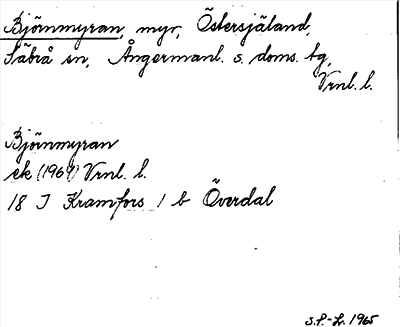 Björnmyran, myr, Östersjäland,
Säbrå sn, Ångermanl. s. doms. tg,
Vrnl. l.
Björnmyran
ek (1964) Vrnl. l.
18 J Kramfors 1 b Överdal
S.F.-Lr. 1965